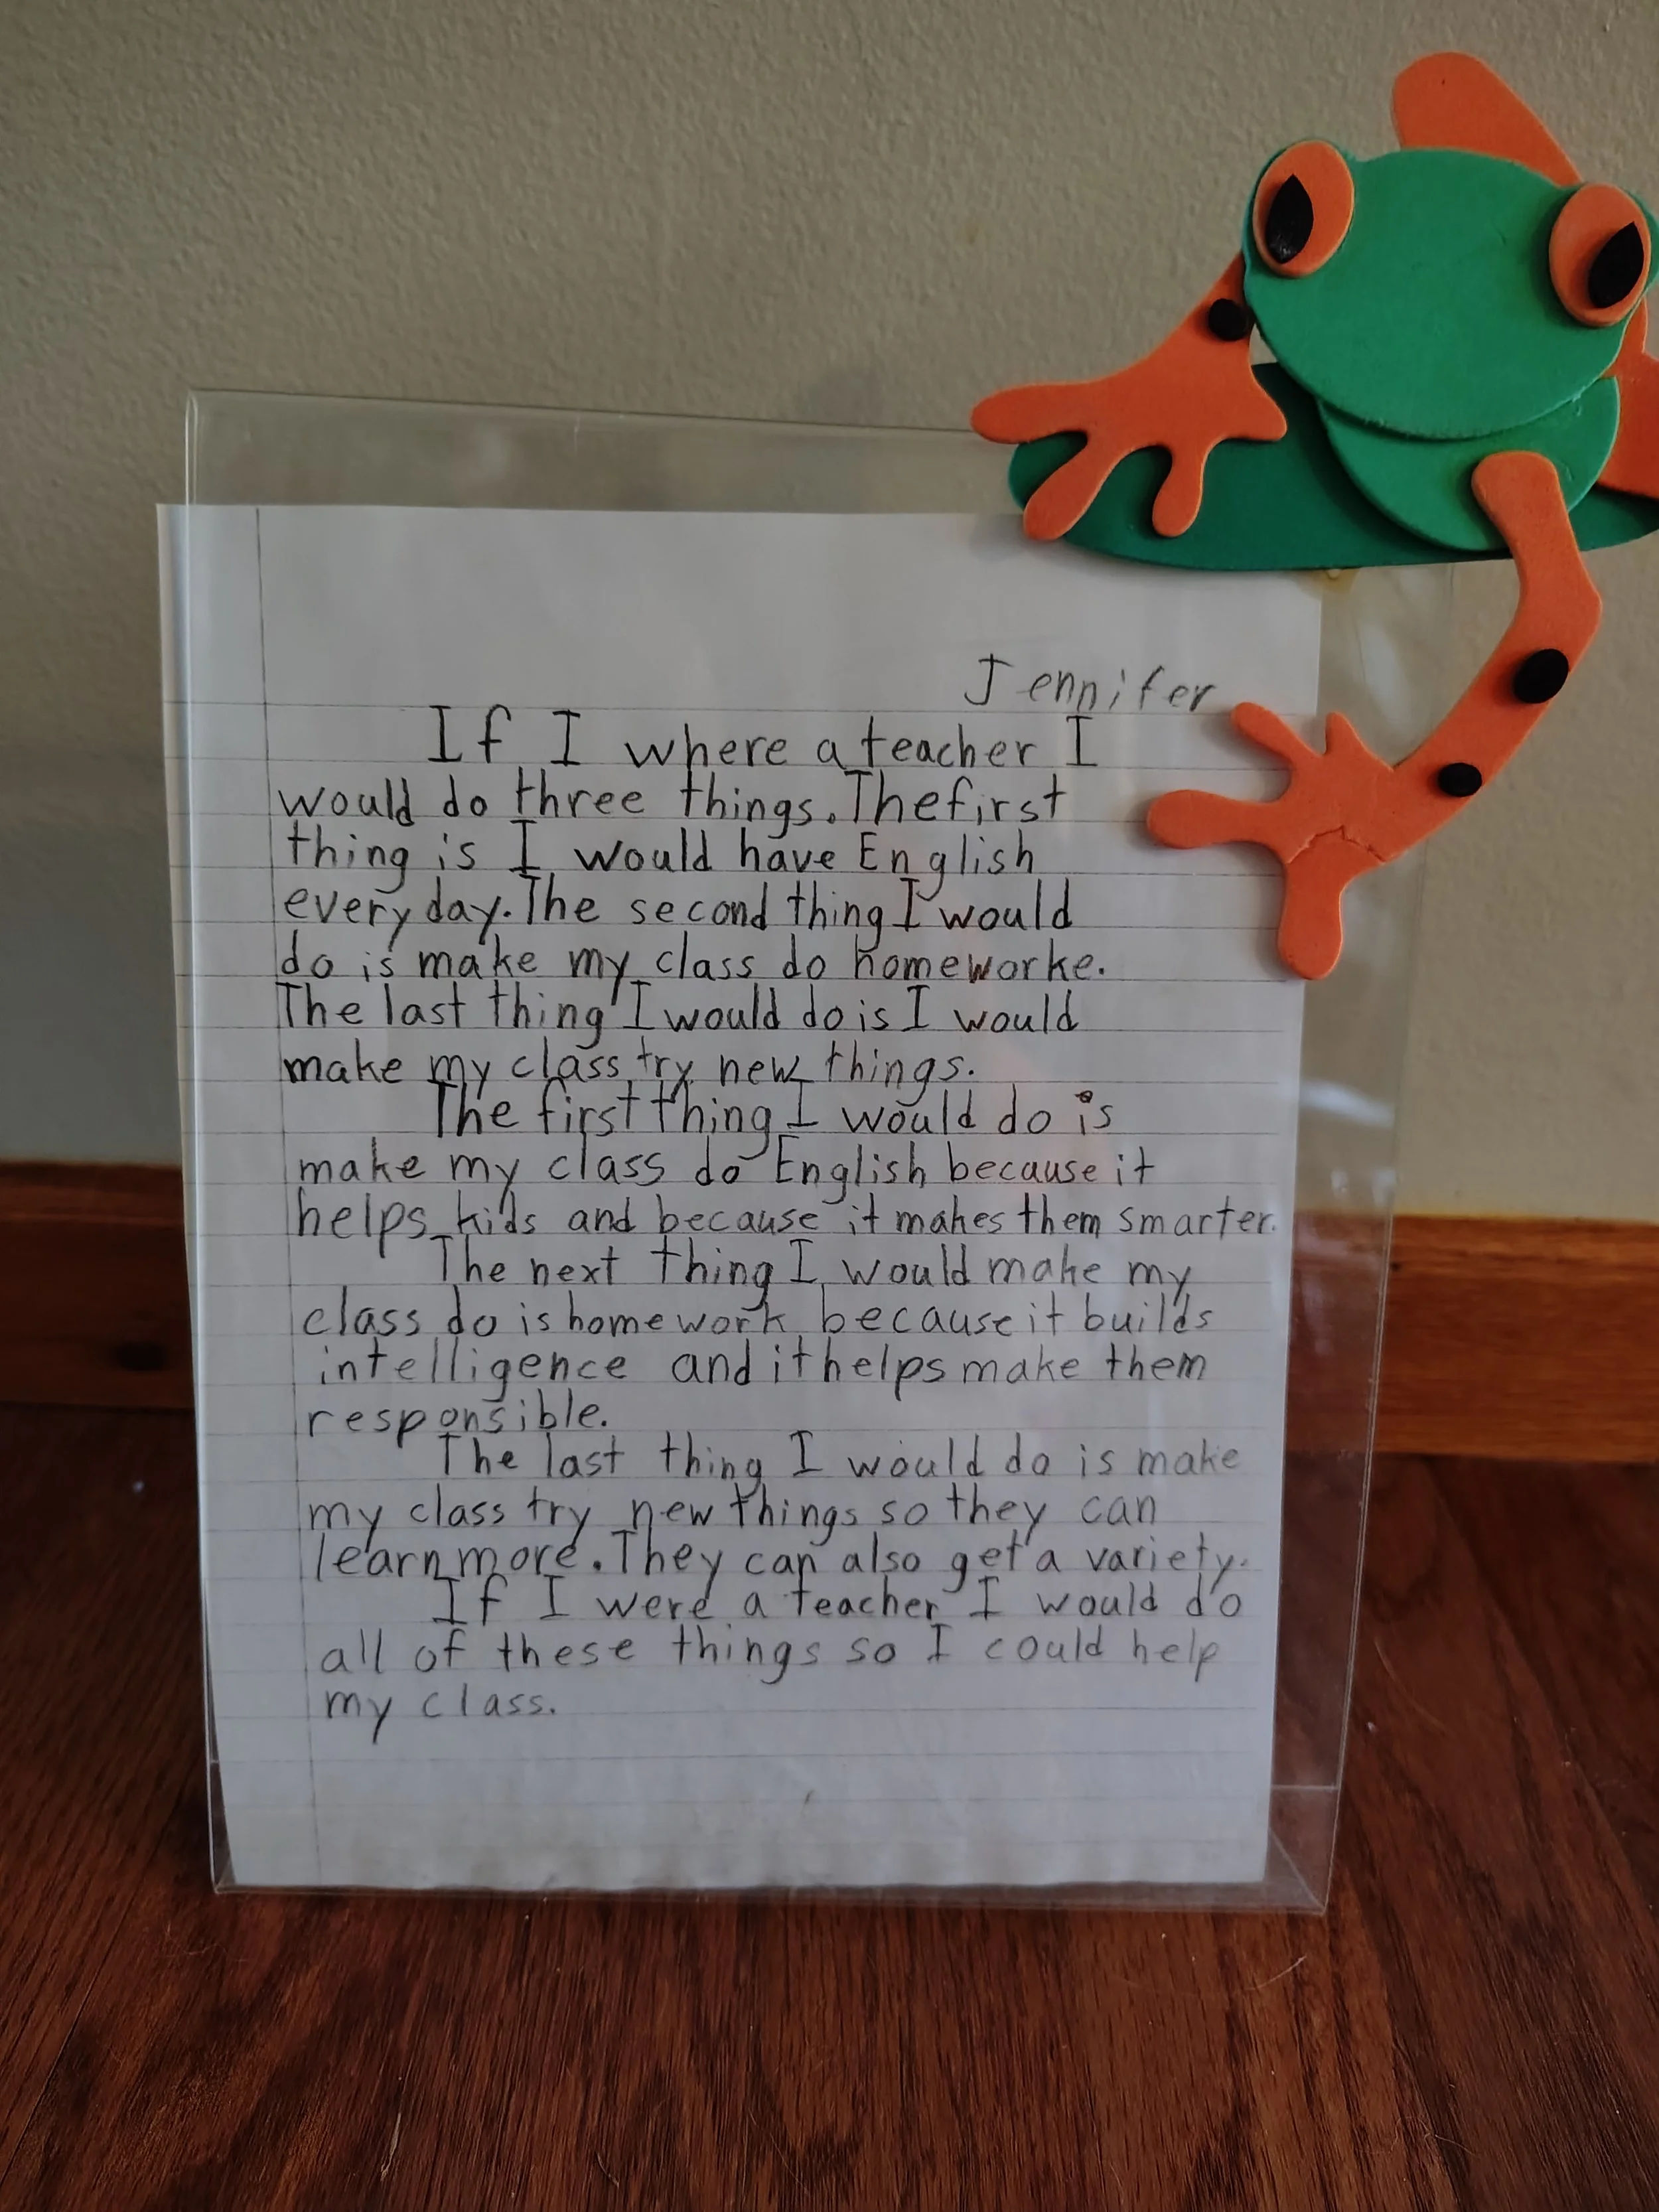 Jennifer
If I where a teacher I
would do three things. The first
thing is I would have English
every day. The second thing I would
do is make my class do homeworke.
The last thing I would do is I would
make my class try new things.
The first thing I would do is
make my class do English because it
helps kids and because it makes them smarter.
The next thing I would make my
class do is homework because it builds
intelligence and it helps make them
responsible.
The last thing I would do is make
my class try new things so they can
learn more. They can also get a variety.
If I were a teacher I would do
all of these things so I could help
my class.